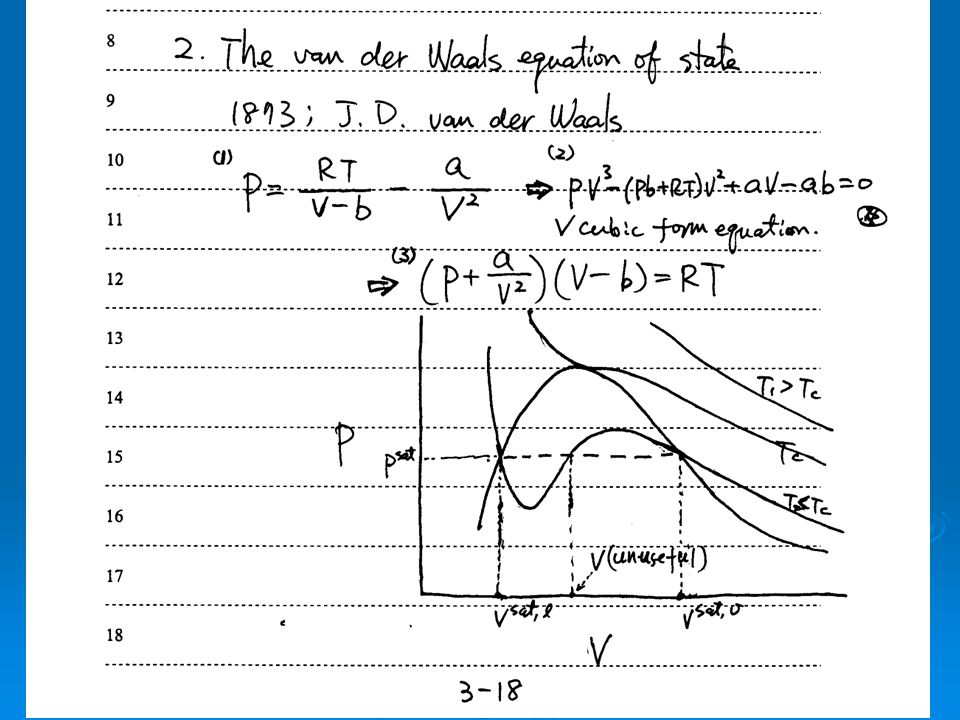 8 2. The van der Waals equation of state
9 1873; J.D. van der Waals
10 (1) P = RT/(V-b) - a/V² (2) ⇒ PV³-(Pb+RT)V²+aV-ab=0
11 V cubic form equation.
12 ⇒ (3) (P+a/V²)(V-b)=RT
13
14 T₁>Tc
P Tc
15 Psat
16 T₂<Tc
17 V(unuseful)
Vsat,l Vsat,v
18 V
3-18